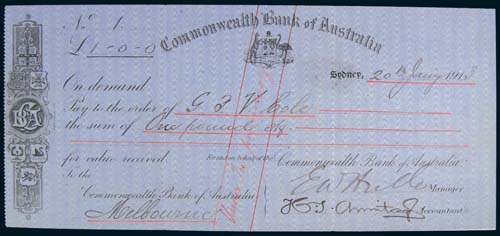 No. 1.
£1-0-0
Commonwealth Bank of Australia
Sydney, 20th Jany 191
On demand
Pay to the order of G F V. Cole
the sum of One pound
for value received For and on behalf of the Commonwealth Bank of Australia
To the
Commonwealth Bank of Australia Manager
Melbourne H. T. Armitage Accountant